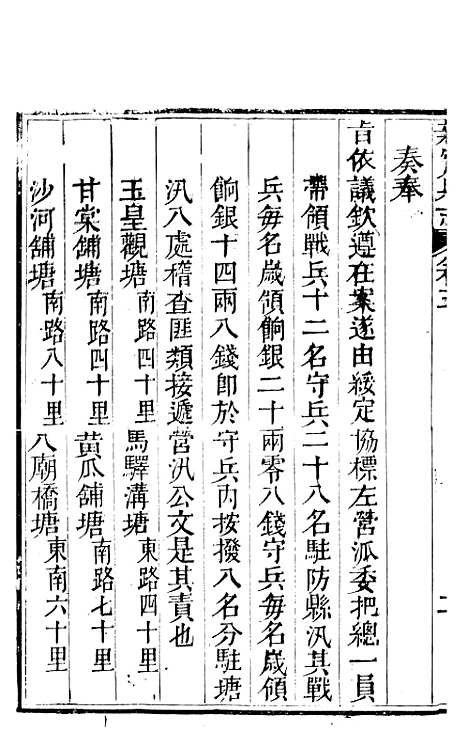 奏奉
旨依議欽遵在案遂由綏定協標左營派委把總一員
帶領戰兵十二名守兵二十八名駐防縣汛其戰
兵每名歲領餉銀二十兩零八錢守兵每名歲領
餉銀十四兩八錢卽於守兵內按撥八名分駐塘
汛八處稽查匪類接遞營汛公文是其責也
玉皇觀塘南路四十里 馬驛溝塘東路四十里
甘棠鋪塘南路四十里 黃瓜鋪塘南路七十里
沙河鋪塘南路八十里 八廟橋塘東南六十里